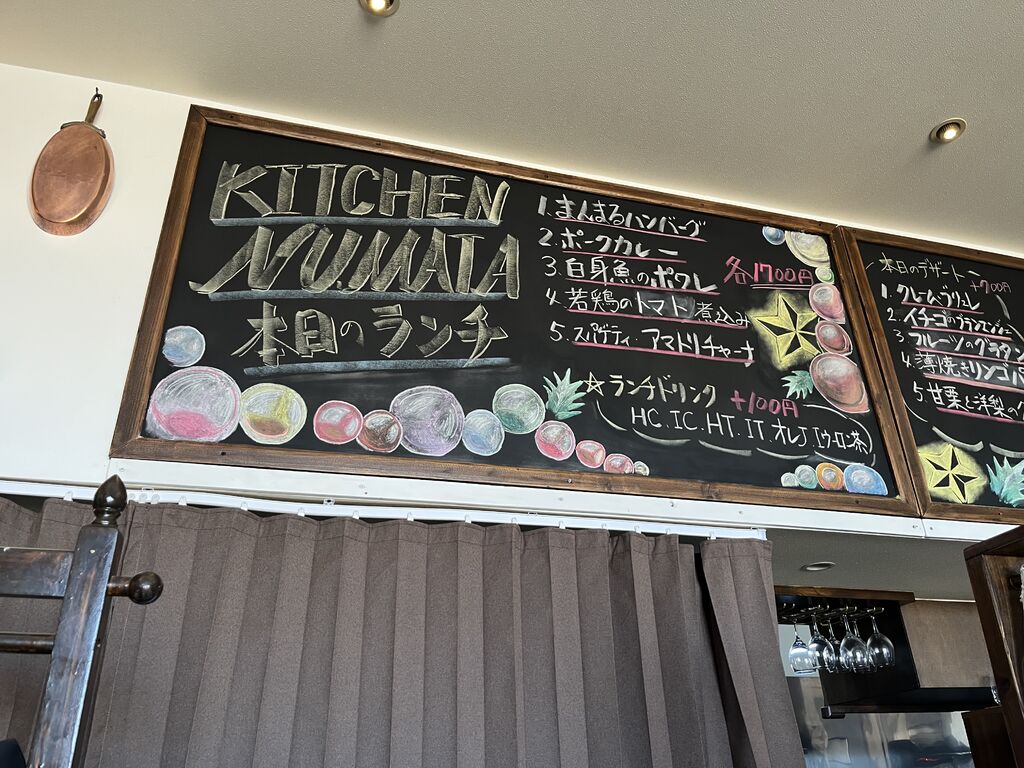 KITCHEN
NUMATA
本日のランチ
1. まんまるハンバーグ
2. ポークカレー
3. 白身魚のポワレ
4. 若鶏のトマト煮込み
5. スパゲティ・アマトリチャーナ
各1700円
☆ランチドリンク +100円
HC. IC. HT. IT. オレJ. ウーロン茶
本日のデザート
+700円
1. クレームブリュレ
2. イチゴの
3. フルーツのグラタン
4. 薄焼きリンゴパ
5. 甘栗と洋梨の